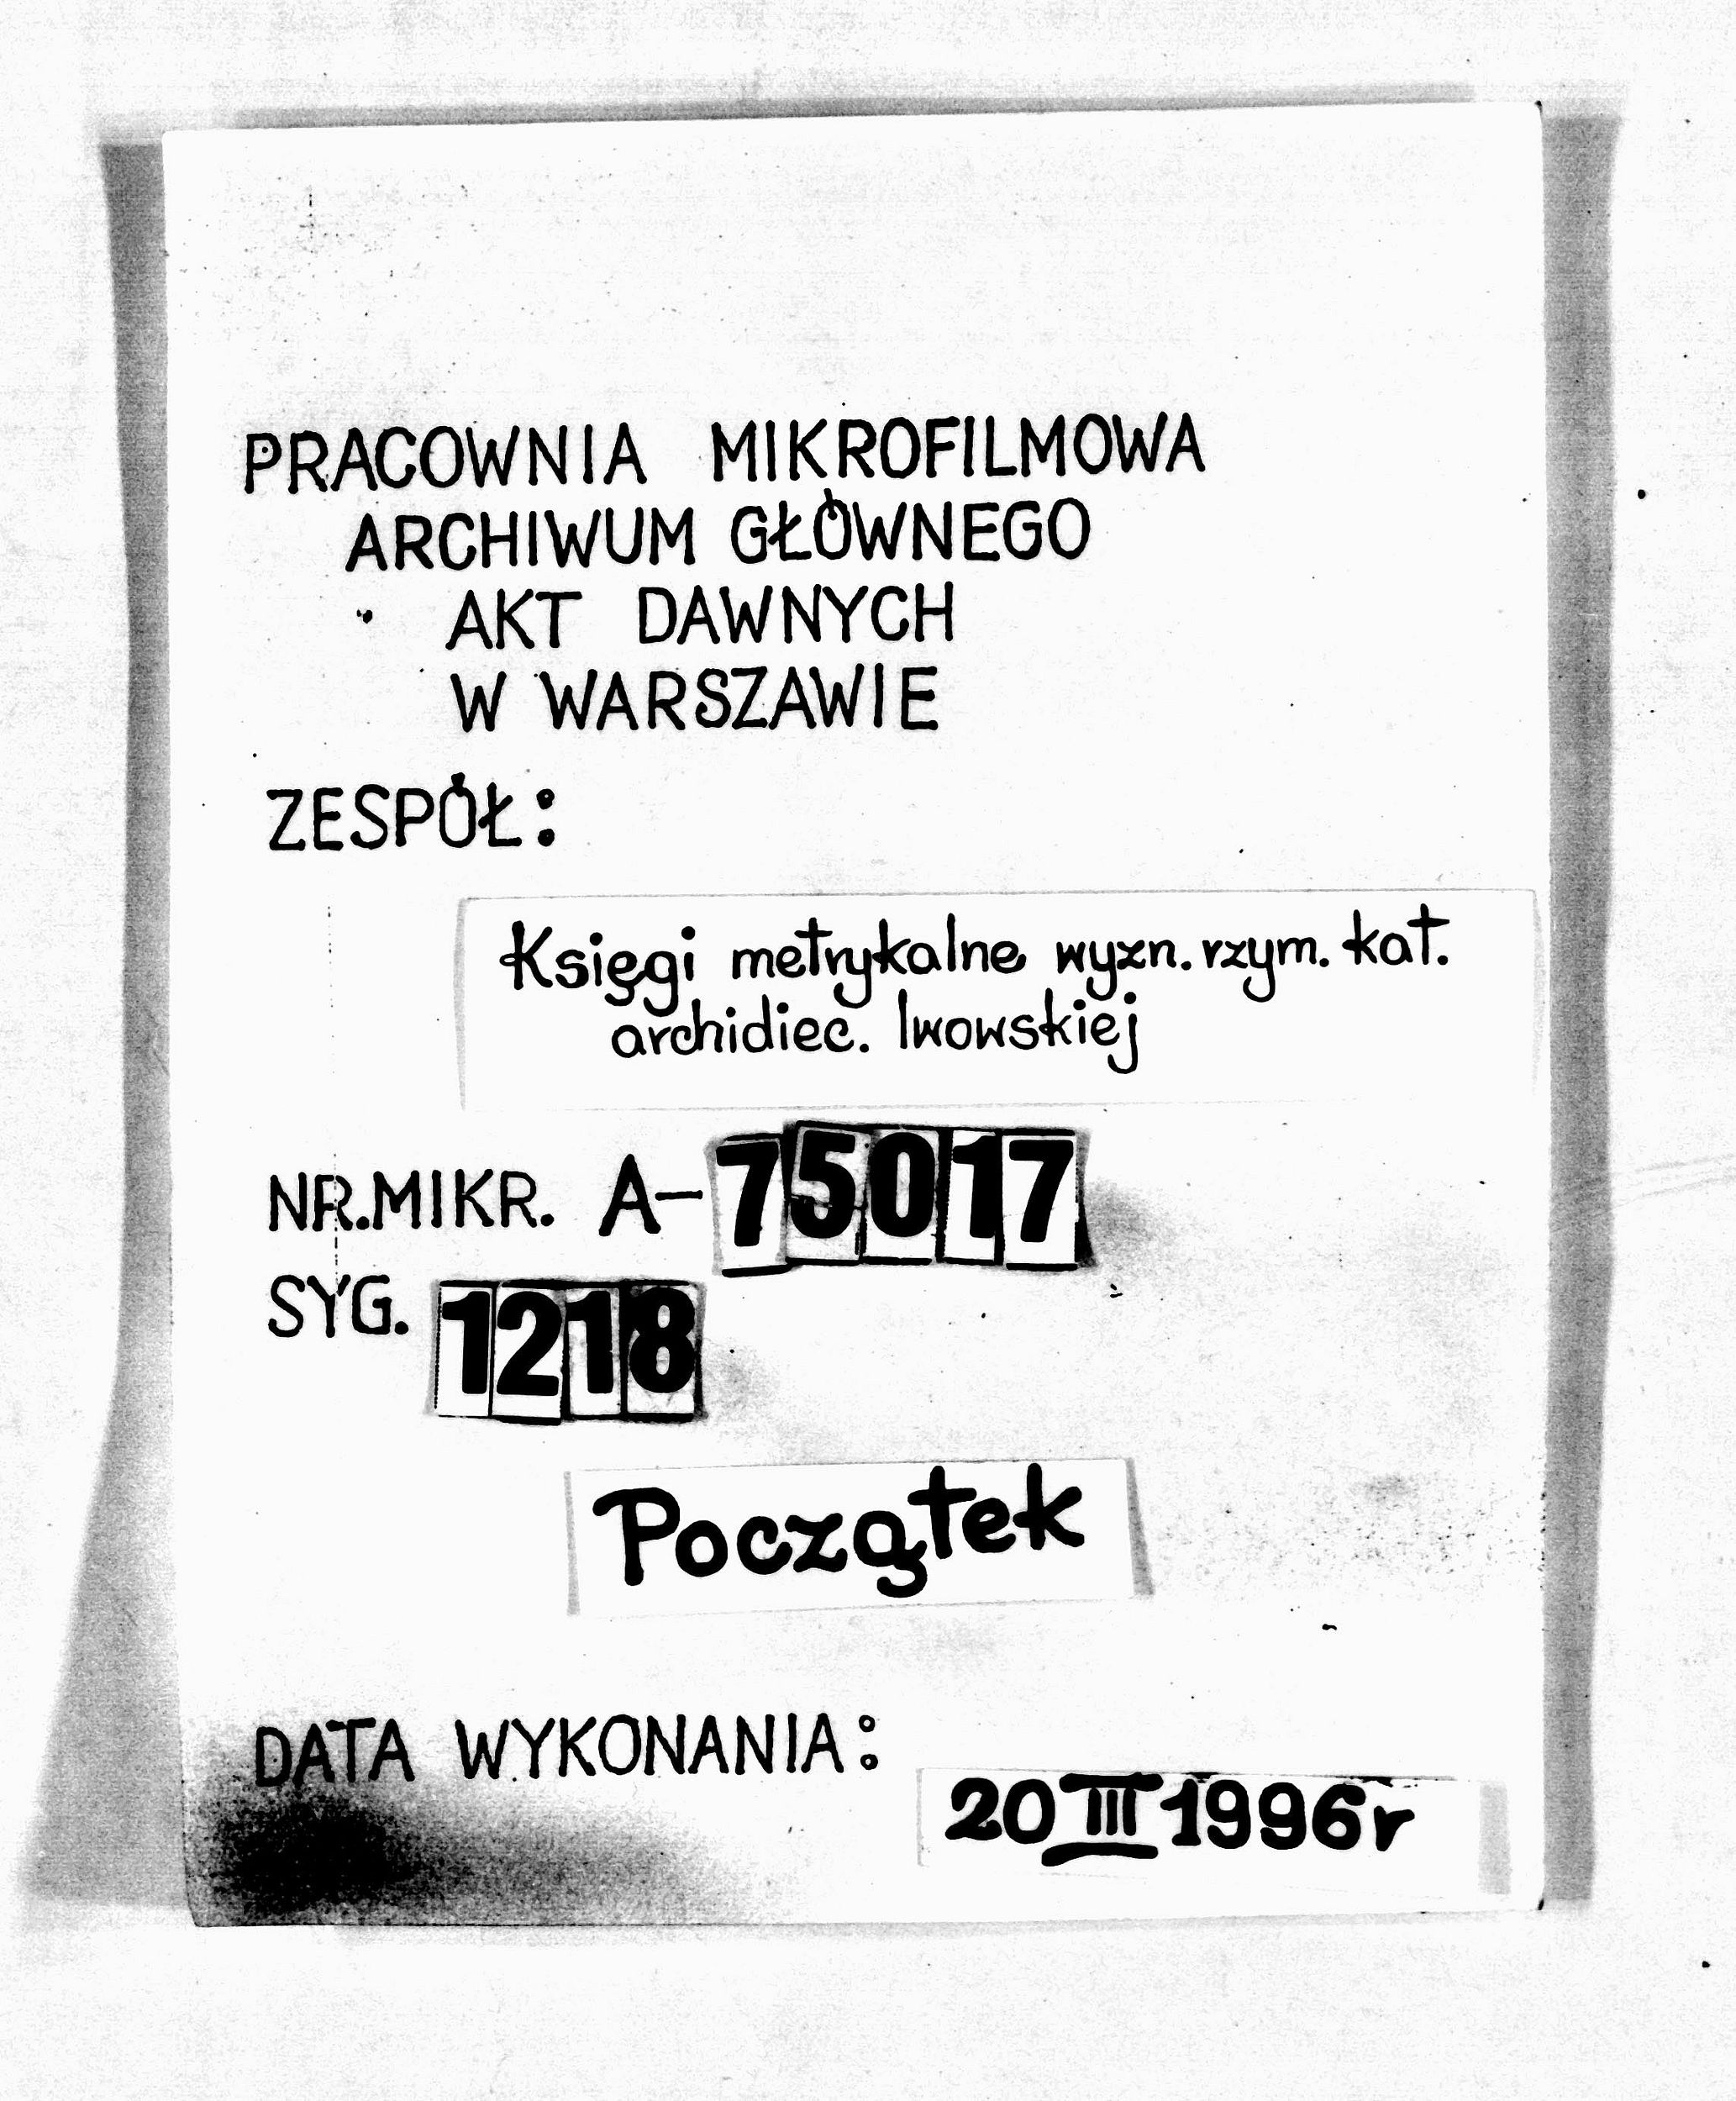 PRACOWNIA MIKROFILMOWA
ARCHIWUM GŁÓWNEGO
AKT DAWNYCH
W WARSZAWIE
ZESPÓŁ:
Księgi metrykalne wyzn. rzym. kat.
archidiec. lwowskiej
NR.MIKR. A-75017
SYG. 1218
Początek
DATA WYKONANIA:
20 III 1996r